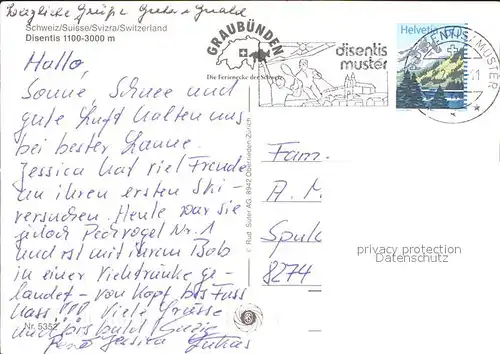 Herzliche Grüße
Schweiz/Suisse/Svizra/Switzerland
Disentis 1100-3000 m
Hallo,
Sonne, Schnee und
gute Luft halten uns
bei bester Laune.
Jessica hat viel Freude
an ihren ersten Ski-
versuchen. Heute war sie
jedoch Pechvogel Nr. 1
und ist mit ihrem Bob
in einer Viehtränke ge-
landet - von Kopf bis Fuss
nass!!! Viele Grüsse
und bis bald!
Jessica
Nr. 5352
GRAUBÜNDEN
Die Ferienecke der Schweiz
disentis
muster
Helvetia
DISENTIS/MUSTER
© Rud. Suter AG, 8942 Oberrieden-Zürich
Fam.
A. M.
8274
privacy protection
Datenschutz